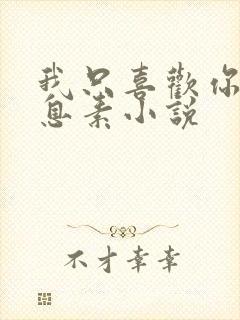 我只喜歡你
息素小説
不才幸幸